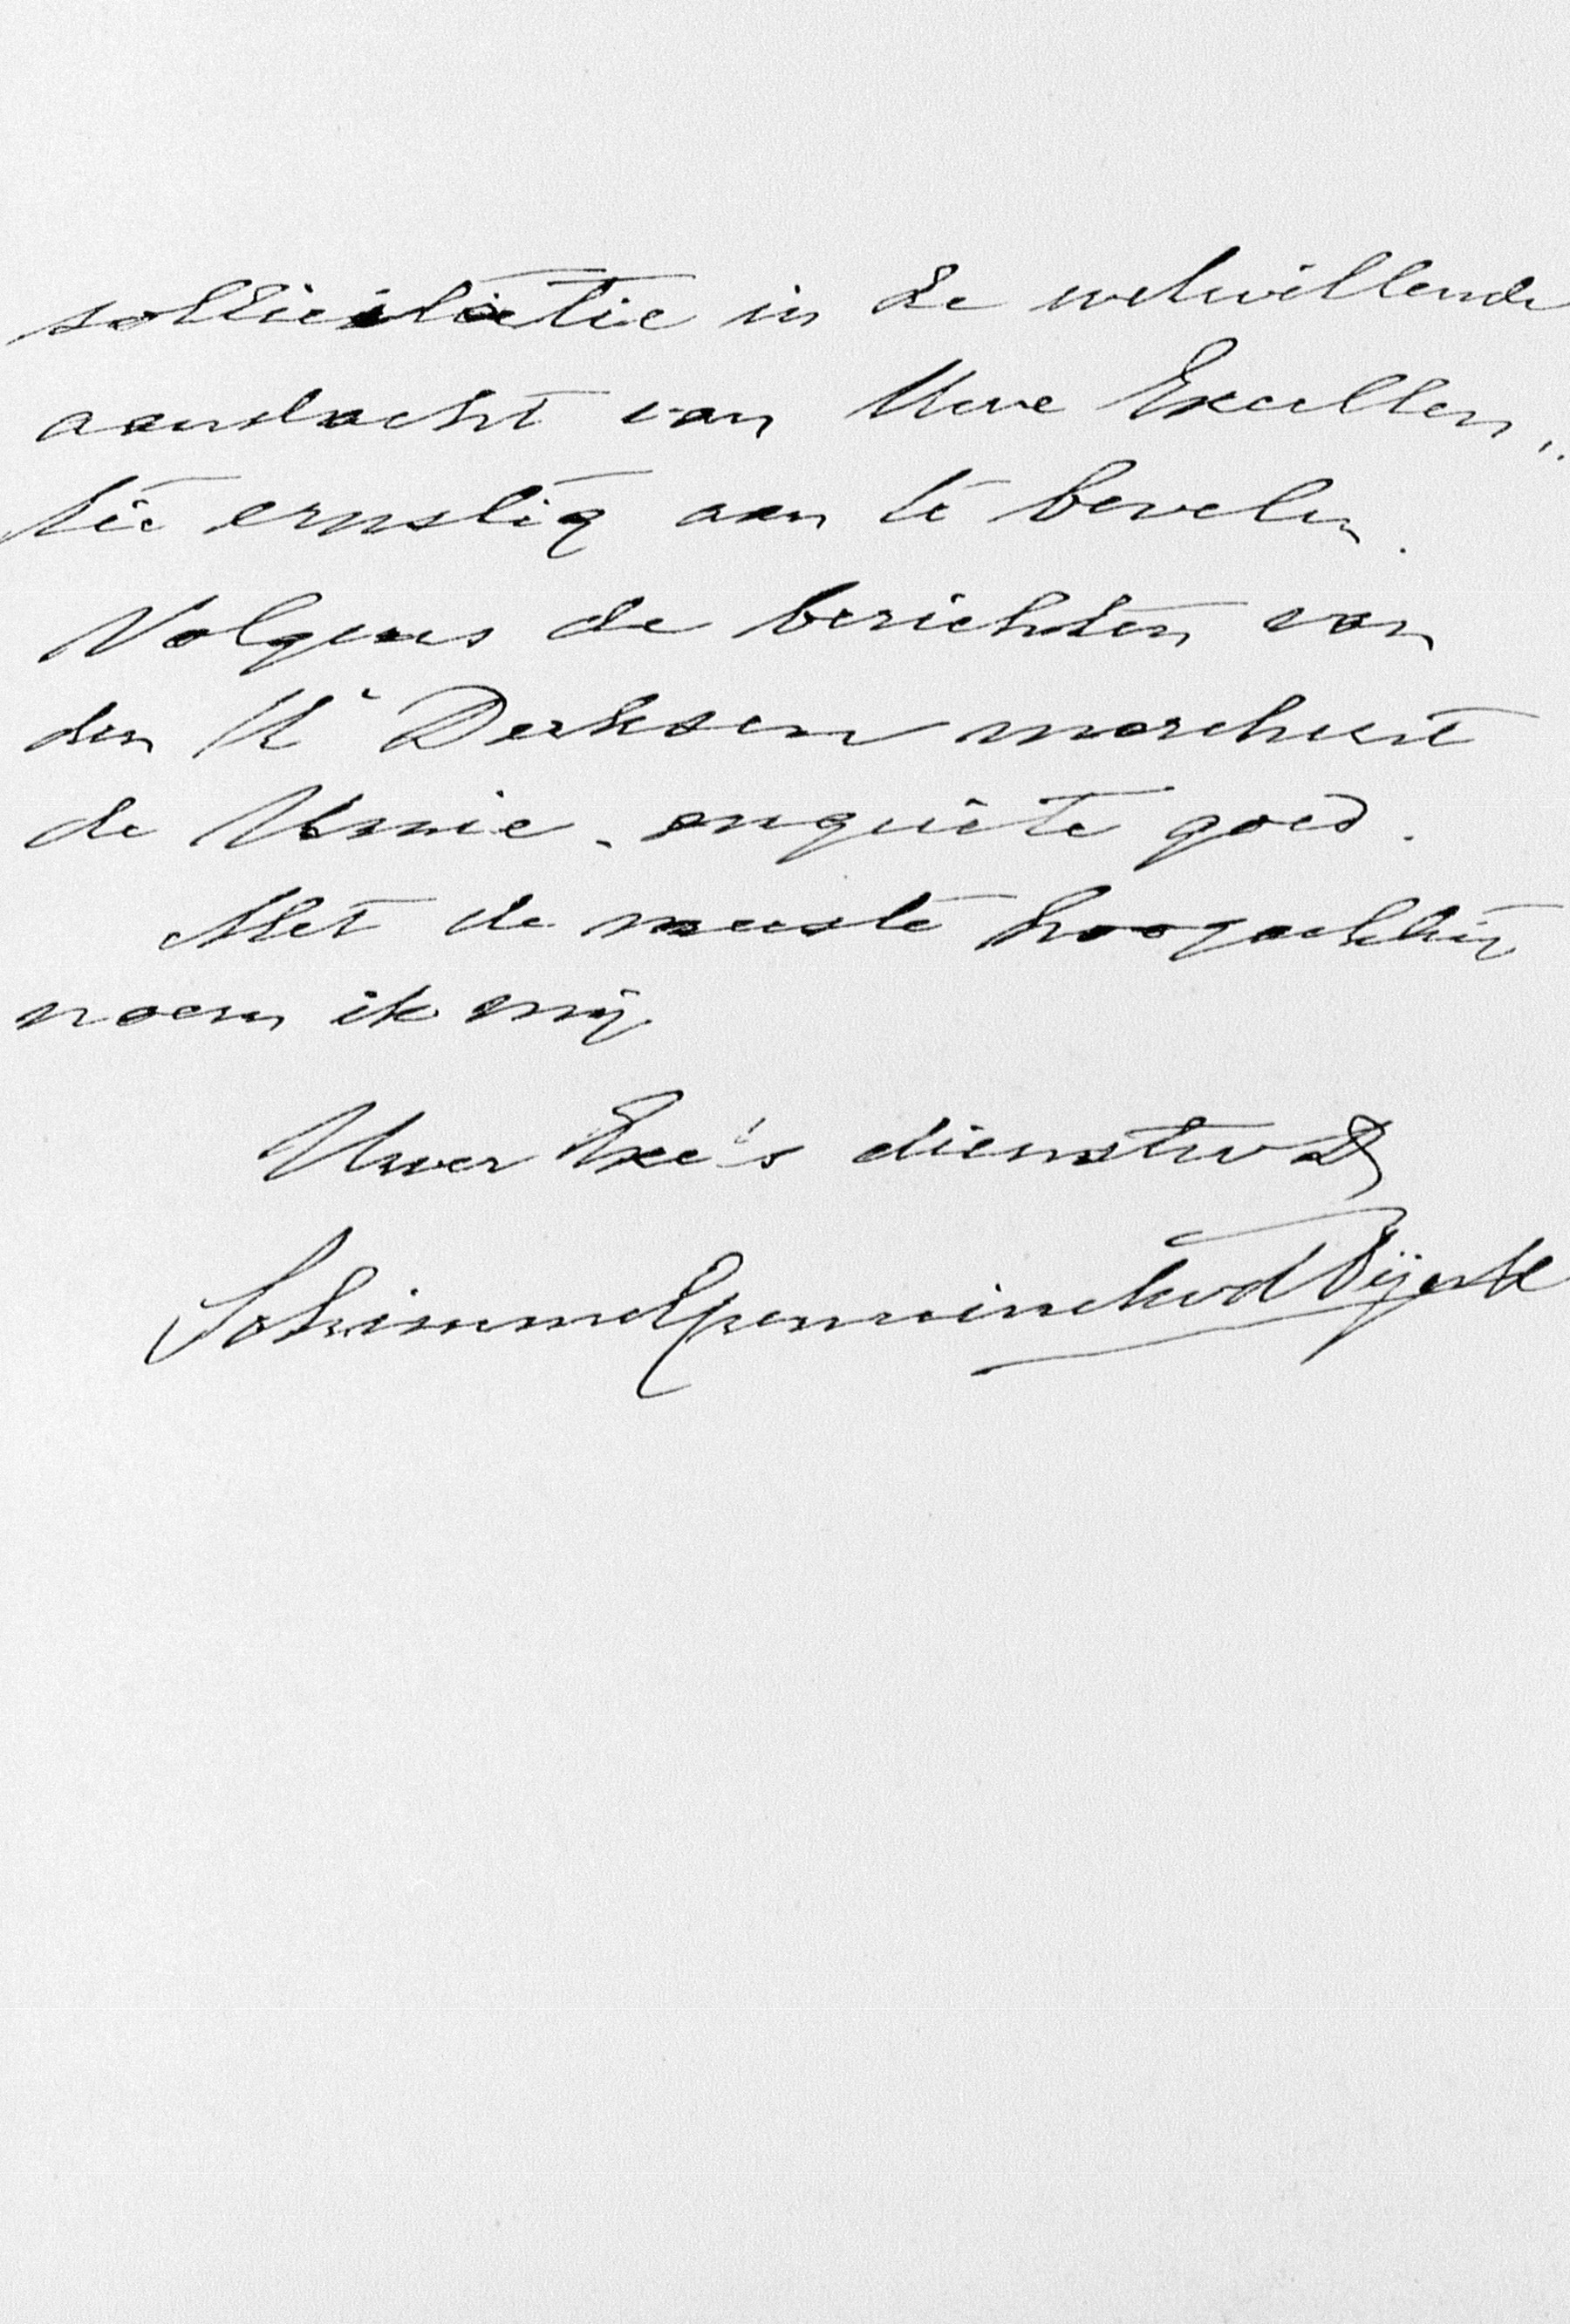 sollicitatie in de welwillende
aandacht van Uwe Excellen„
tie ernstig aan te bevelen.
Volgens de berichten van
den Hr Derksen marcheert
de Unie-enquête goed.
Met de meeste hoogachting
noem ik mij
Uwer Exc's dienstw D
Schimmelpenninck vd Oije